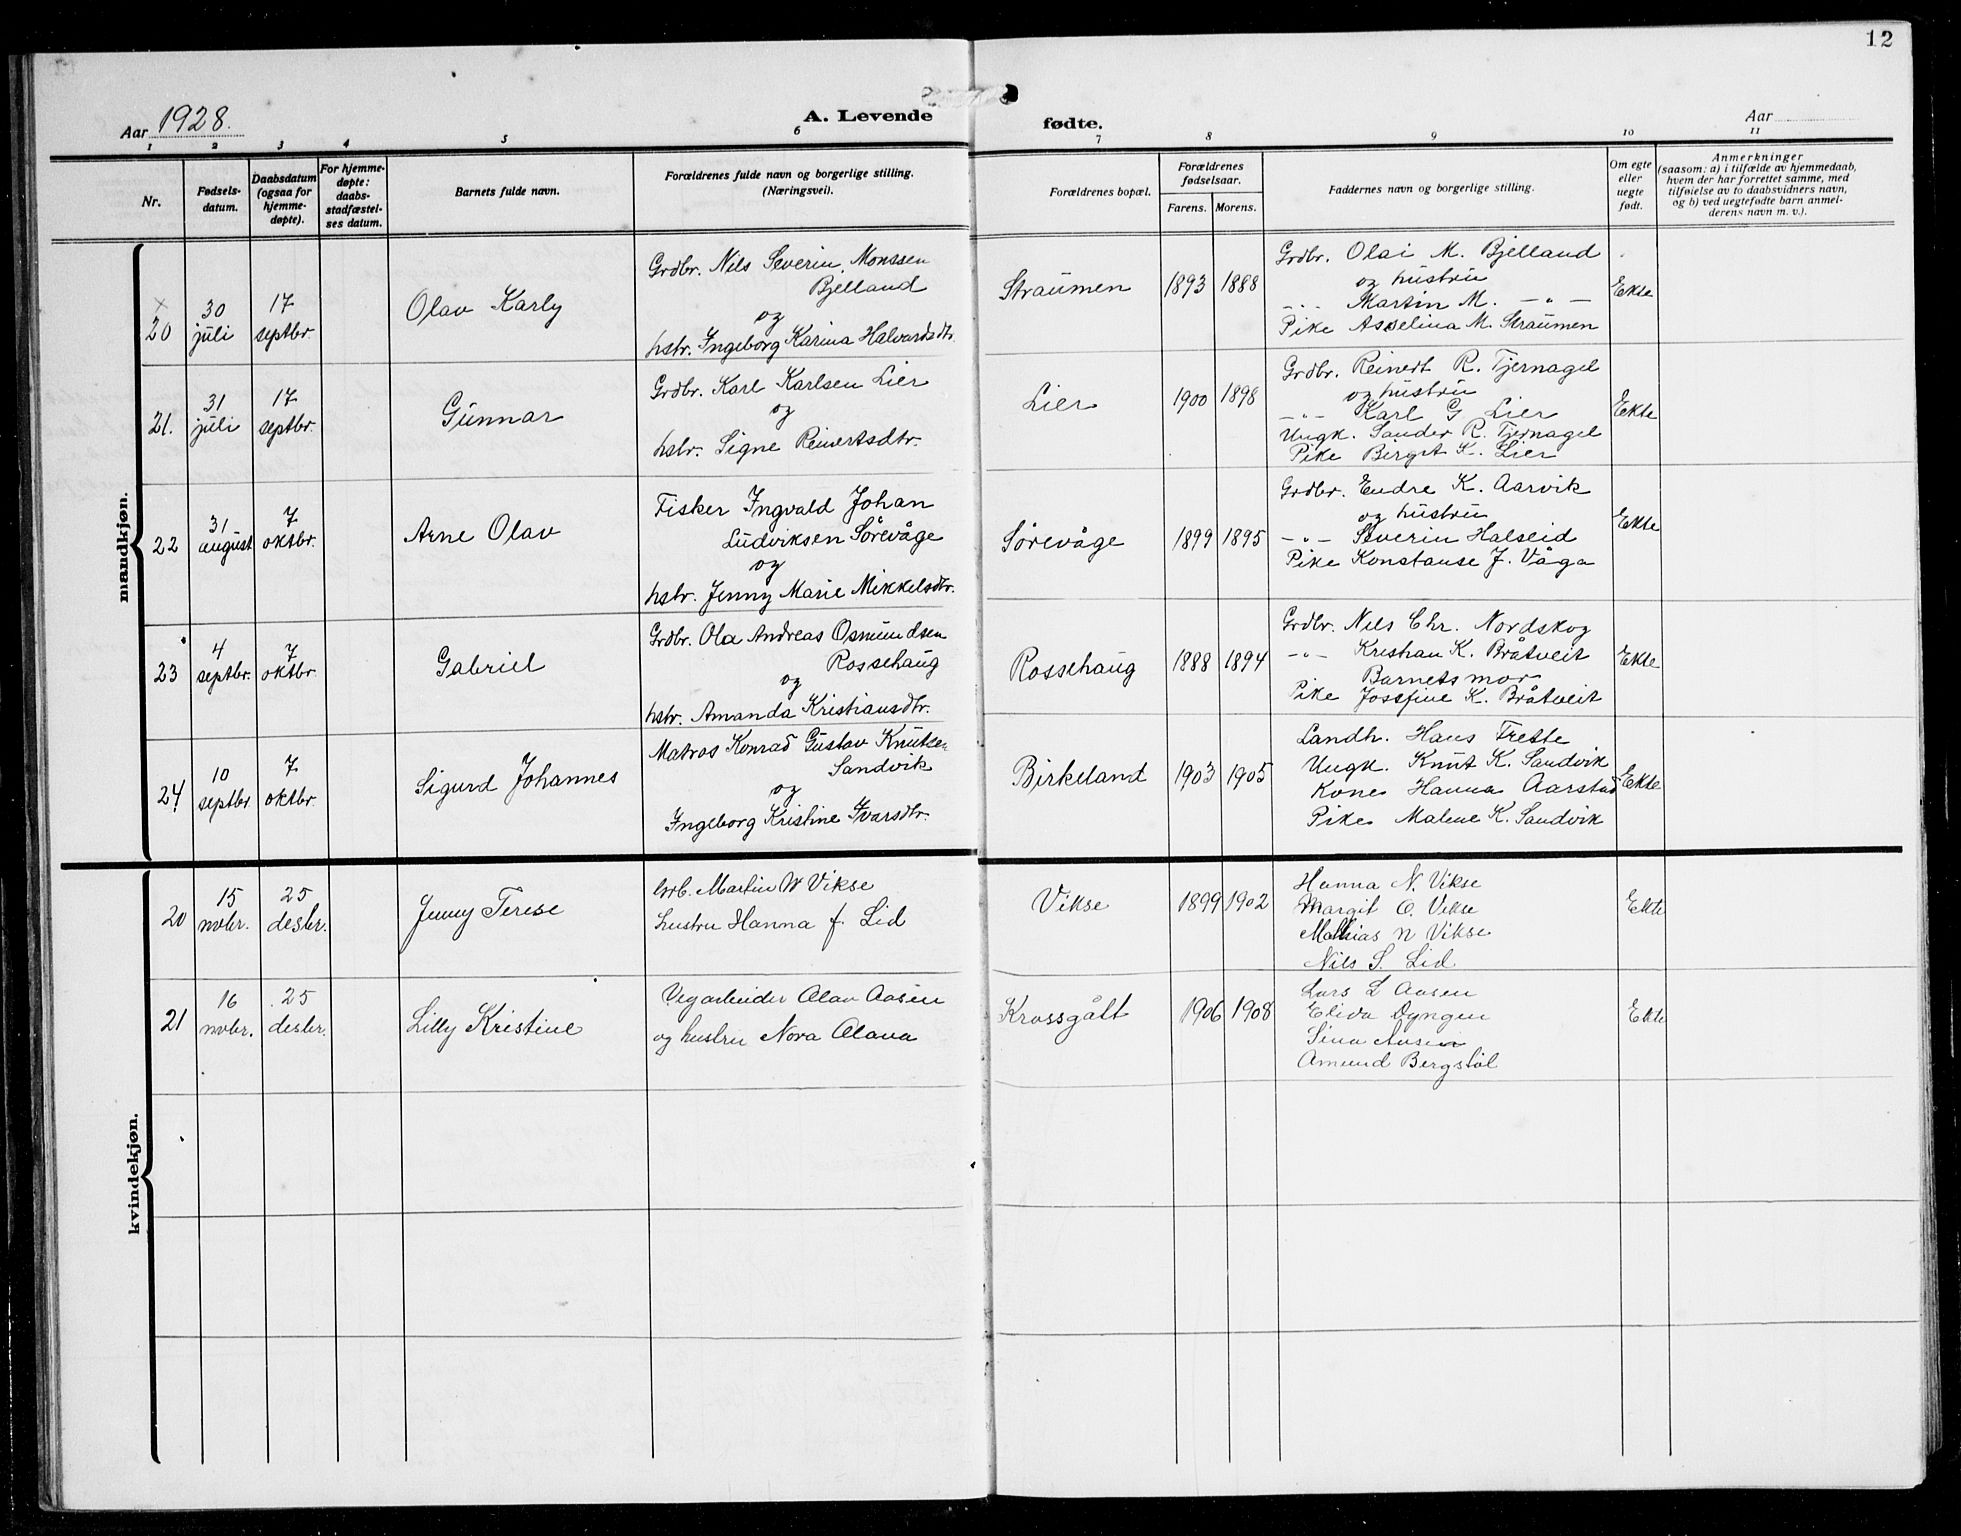 12
Aar 1928.
A. Levende fødte.
Aar
1 2 3 4 5 6 7 8 9 10 11
Nr.
Fødsels-
datum.
Daabsdatum
(ogsaa for
hjemme-
døpte).
For hjemme-
døpte:
daabs-
stadfæstel-
ses datum.
Barnets fulde navn.
Forældrenes fulde navn og borgerlige stilling.
(Næringsvei).
Forældrenes bopæl.
Forældrenes
fødselsaar.
Farens. Morens.
Faddernes navn og borgerlige stilling.
Om egte
eller
uegte
født.
Anmerkninger
(saasom: a) i tilfælde av hjemmedaab,
hvem der har forrettet samme, med
tilføielse av to daabsvidners navn,
og b) ved uegtefødte barn anmel-
derens navn m. v.).
mandkjøn.
× 20
30
juli
17
septbr.
Olav Karly
Grdbr. Nils Severin Monssen
Bjelland
og
hstr. Ingeborg Karina Halvardsdtr.
Straumen
1893 1888
Grdbr. Olai M. Bjelland
og hustru
-"- Martin M. -"-
Pike Asselina M. Straumen
Ekte
21.
31
juli
17
septbr.
Gunnar
Grdbr. Karl Karlsen Lier
og
hstr. Signe Reinertsdtr.
Lier
1900 1898
Grdbr. Reinert R. Tjernagel
og hustru
-"- Karl G Lier
Ungk. Sander R. Tjernagel
Pike Birgit K. Lier
Ekte
22
31
august
7
oktbr.
Arne Olav
Fisker Ingvald Johan
Ludviksen Sörevåge
og
hstr. Jenny Marie Mikkelsdtr.
Sörevåge
1899 1895
Grdbr. Endre K. Aarvik
og hustru
-"- Severin Halseid
Pike Konstanse J. Våga
Ekte
23
4
septbr.
7
oktbr.
Gabriel
Grdbr. Ola Andreas Osmundsen
Rossehaug
og
hstr. Amanda Kristiansdtr.
Rossehaug
1888 1894
Grdbr. Nils Chr. Nordskog
-"- Kristian K. Bråtveit
Barnets mor
Pike Josefine K. Bråtveit
Ekte
24
10
septbr.
7
oktbr.
Sigurd Johannes
Matros Konrad Gustav Knutsen
Sandvik
og
Ingeborg Kristine Ivarsdtr.
Birkeland
1903 1905
Landh. Hans Frette
Ungk. Knut K. Sandvik
Kone Hanna Aarstad
Pike Malene K. Sandvik
Ekte
kvindekjøn.
20
15
novbr.
25
desbr.
Jenny Terese
Grb. Martin W Vikse
hustru Hanna f. Lid
Vikse
1899 1902
Hanna N. Vikse
Margit O. Vikse
Mathias N Vikse
Nils S. Lid
Ekte
21
16
novbr.
25
desbr.
Lilly Kristine
Vegarbeider Olav Aasen
og hustru Nora Olava
Krossgått
1906 1908
Lars L Aasen
Eliva Dyngen
Sina Aasen
Amund Bergstöl
Ekte